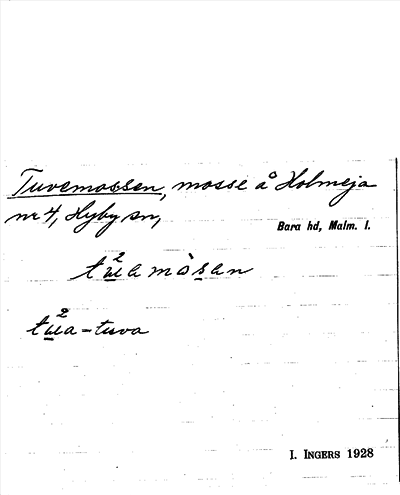 Tuvemossen, mosse å Holmeja
nr 4, Hyby sn,
Bara hd, Malm. l.
t²u̲a mòs̲an
t²u̲a - tuva
I. INGERS 1928